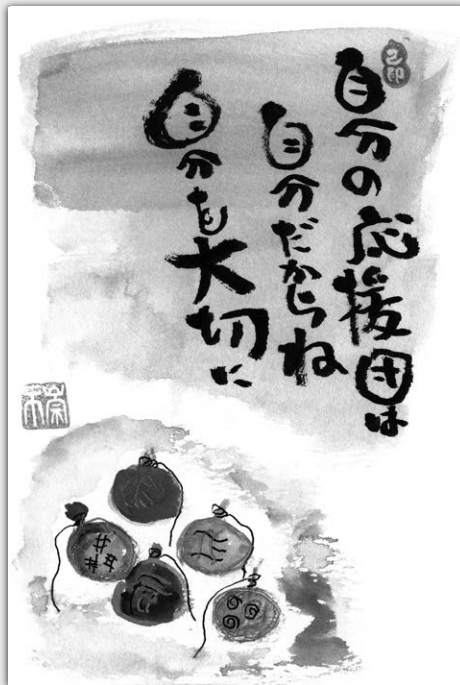 自分の応援団は
自分だからね
自分を大切に